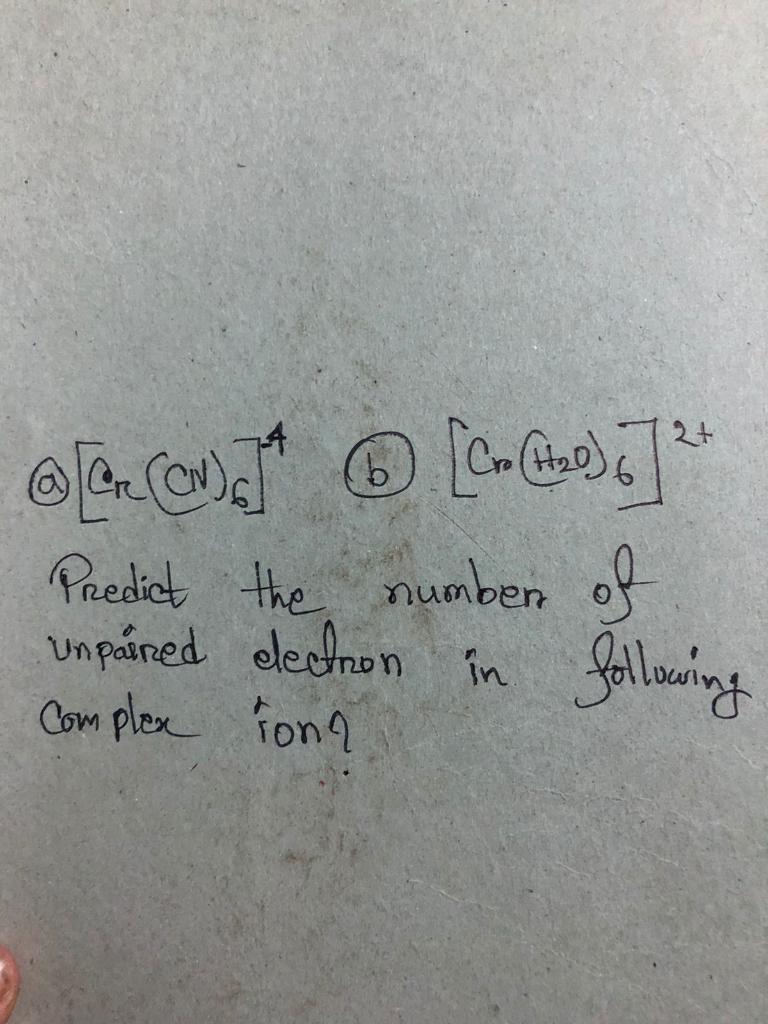 ⓐ [Cr(CN)6]-4 ⓑ [Cr(H2O)6]2+
Predict the number of
unpaired electron in following
complex ion?